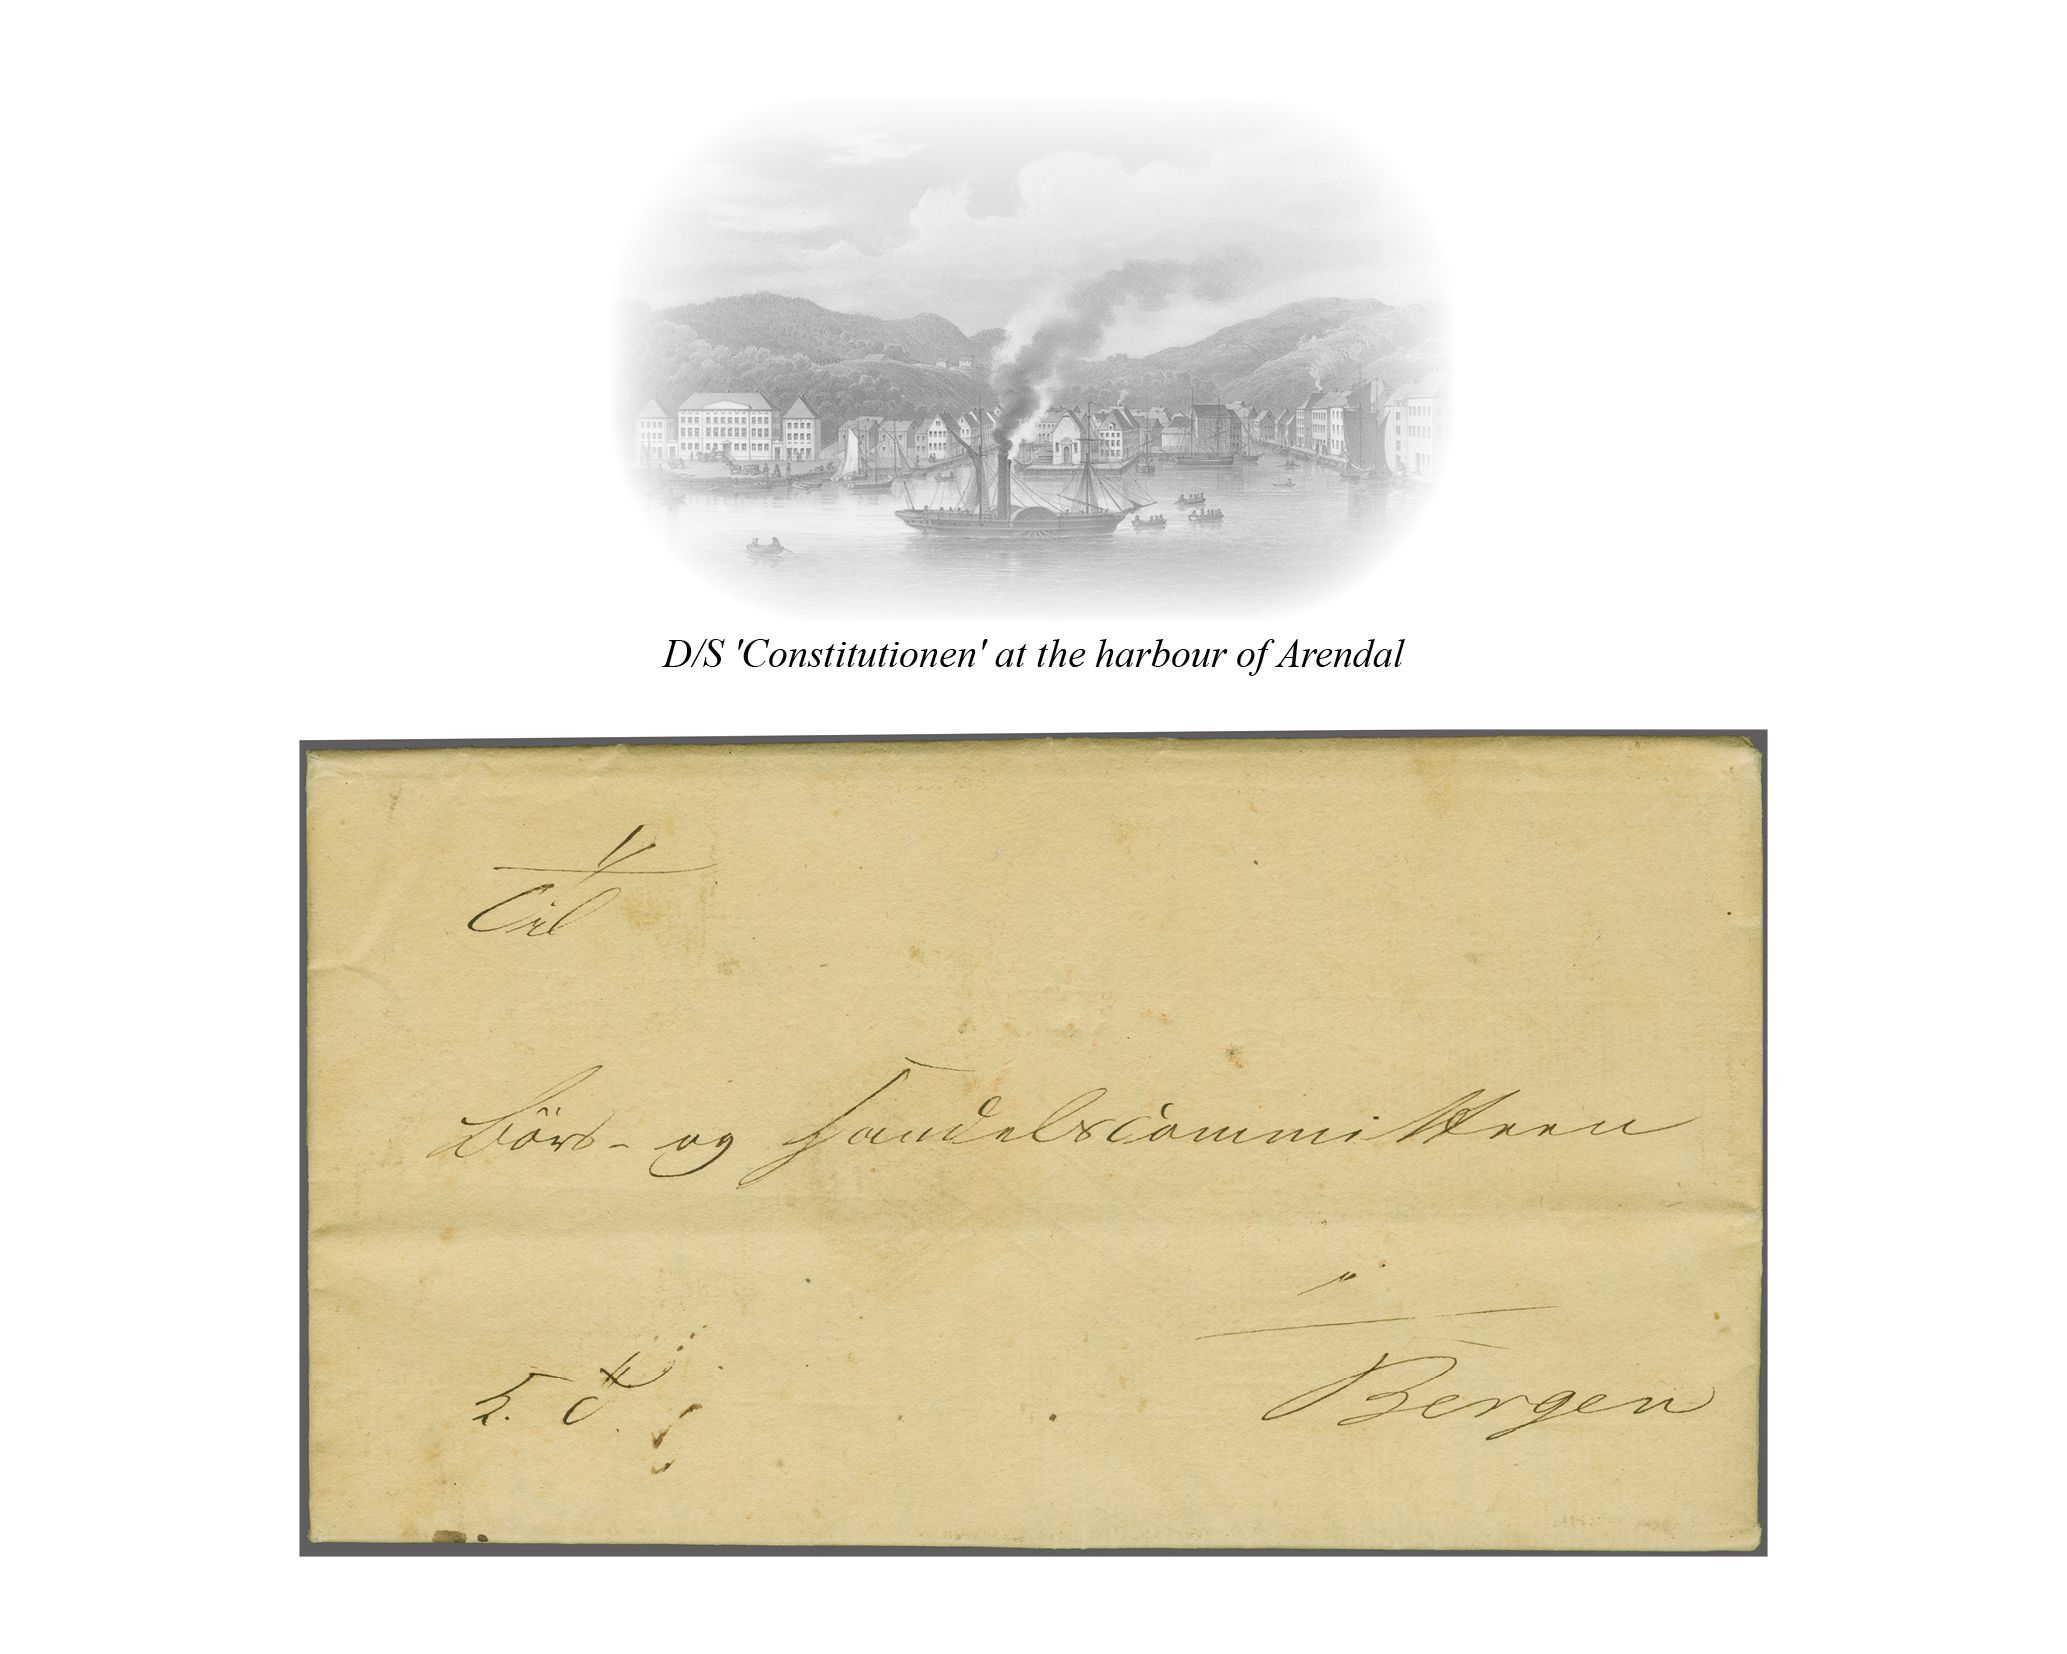 D/S 'Constitutionen' at the harbour of Arendal
Til
Börs- og Handelscommitteen
i
Bergen